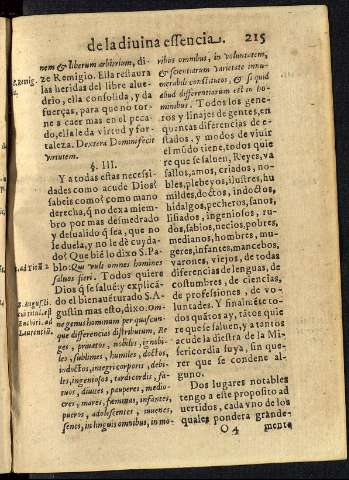 de la divina essencia. 215
nem & liberum arbitrium, di-
ze Remigio. Ella restaura
las heridas del libre alue-
drio, ella consolida, y da
fuerças, para que no tor-
ne a caer mas en el peca-
do, ella le da virtud y for-
taleza. Dextera Domini fecit
virtutem.
§. III.
Y a todas estas necessi-
dades como acude Dios?
sabeis como? como mano
derecha, q̃ no dexa miem-
bro por mas desmedrado
y desualido q̃ sea, que no
le duela, y no le dè cuyda-
do? Que biẽ lo dixo S. Pa-
blo: Qui vult omnes homines
saluos fieri. Todos quiere
Dios q̃ se saluẽ: y explicã-
do el bienauẽturado S. A-
gustin mas esto, dixo: Om-
ne genus hominum per quascun-
que differencias distributum, Re-
ges, priuatos, nobiles, ignobi-
les, sublimes, humiles, doctos,
indoctos, integri corporis, debi-
les, ingeniosos, tardicordis, fa-
tuos, diuites, pauperes, medio-
cres, mares, fœminas, infantes,
pueros, adolescentes, iuuenes,
senes, in linguis omnibus, in mo-
ribus omnibus, in voluntatem,
& scientiarum varietate innu-
merabili constitutos, & si quid
aliud differentiarum est in ho-
minibus. Todos los gene-
ros y linajes de gentes, en
quantas diferencias de e-
stados, y modos de viuir
el mũdo tiene, todos quie
re que se saluen, Reyes, va
sallos, amos, criados, no-
bles, plebeyos, ilustres, hu
mildes, doctos, indoctos,
hidalgos, pecheros, sanos,
lisiados, ingeniosos, ru-
dos, sabios, necios, pobres,
medianos, hombres, mu-
geres, infantes, mancebos,
varones, viejos, de todas
diferencias de lenguas, de
costumbres, de ciencias,
de professiones, de vo-
luntades. Y finalmẽte to-
dos quãtos ay, tãtos quie
re que se saluen, y a tantos
acude la diestra de la Mi-
sericordia suya, sin que-
rer que se condene al-
guno.
Dos lugares notables
tengo a este proposito ad
uertidos, cada vno de los
quales pondera grande-
O 4 mente